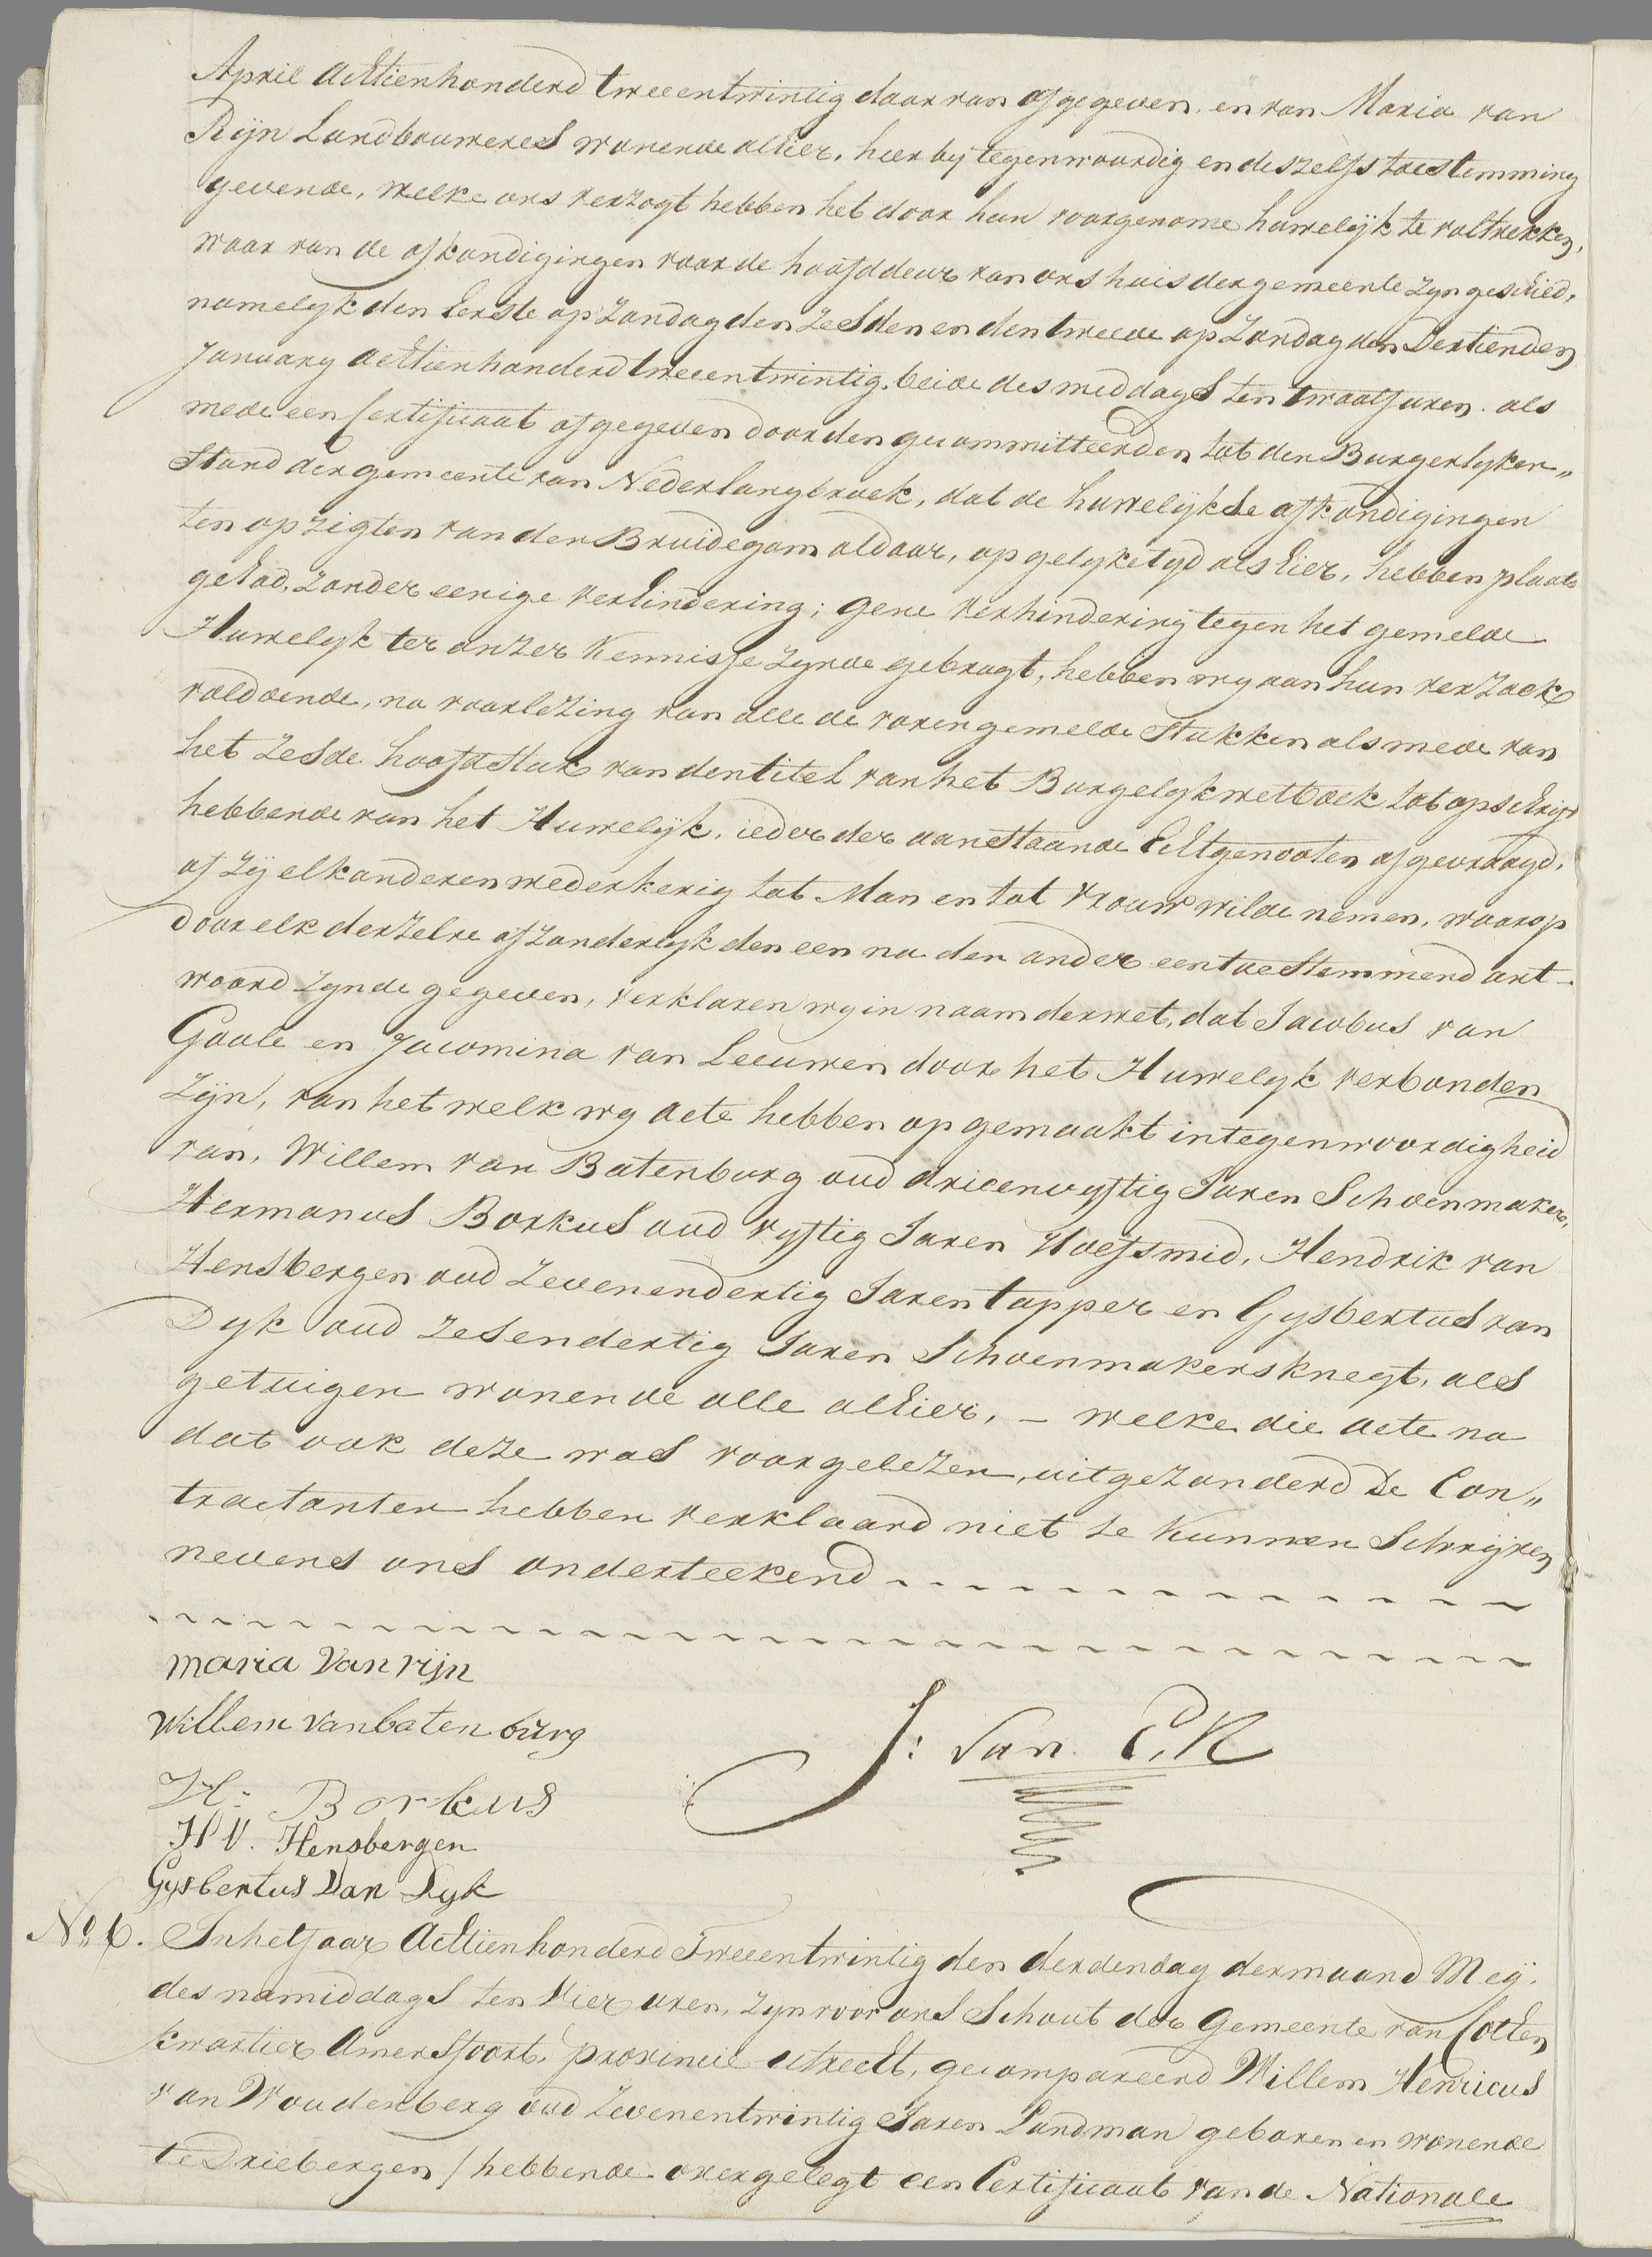 April achttienhonderd tweeentwintig daar van afgegeven, en van Maria van
Rijn Landbouweres wonende alhier, hier bij tegenwoordig en deszelfs toestemming
gevende, welke ons verzogt hebben het door hun voorgenome huwelijk te voltrekken,
waar van de afkondigingen voor de hoofddeur van ons huis der gemeente zyn geschied,
namelyk den Eerste op Zondag den zesden en den tweede op Zondag den Dertienden
January achttienhonderd tweeentwintig, beide des middags ten twaalf uren. als
mede een Certificaat afgegeven door den gecommitteerden tot den Burgerlyken„
Stand der gemeente van Nederlangbroek, dat de huwelijkse afkondigingen
ten opzigten van den Bruidegom aldaar, op gelyke tyd als hier, hebben plaats
gehad, zonder eenige verhindering; gene verhindering tegen het gemelde
Huwelyk ter onzer Kennisse zynde gebragt, hebben wy aan hun verzoek
voldoende, na voorlezing van alle de vorengemelde Stukken als mede van
het zesde hoofdstuk van den titel van het Burgelyk wetboek tot opschrift
hebbende van het Huwelijk, ieder der aanstaande Echtgenooten afgevraagd,
of zij elkanderen wederkerig tot Man en tot Vrouw wilde nemen, waarop
door elk derzelve afzonderlyk den een na den ander een toestemmend ant-
woord zynde gegeven, verklaren wy in naam der wet, dat Jacobus van
Gaale en Jacomina van Leeuwen door het Huwelyk verbonden
Zijn, van het welk wy acte hebben opgemaakt in tegenwoordigheid
van, Willem van Batenburg oud drieenvyftig Jaren Schoenmaker,
Hermanus Borkus oud vyftig Jaren Hoefsmid, Hendrik van
Hensbergen oud Zevenendertig Jaren tapper en Gysbertus van
Dyk oud zesendertig Jaren Schoenmakersknegt, als
getuigen wonende alle alhier, - welke die acte na
dat ook deze was voorgelezen, uitgezonderd De Con„
tractanten hebben verklaard niet te Kunnen Schrijven
nevens ons onderteekend
maria Van rijn
Willem van batenburg
J: Van Eck
H: Borkus
H V. Hensbergen
Gysbertus Van Dyk
No 6. In het Jaar Achttienhonderd Tweeentwintig den derden dag der maand Meÿ.
des namiddags ten Vier uren, zyn voor ons Schout der Gemeente van Cothen
kwartier Amersfoort, provincie utrecht, gecompareerd Willem Henricus
van Woudenberg oud Zevenentwintig Jaren Landman geboren en wonende
te Driebergen / hebbende overgelegt een Certificaat van de Nationale